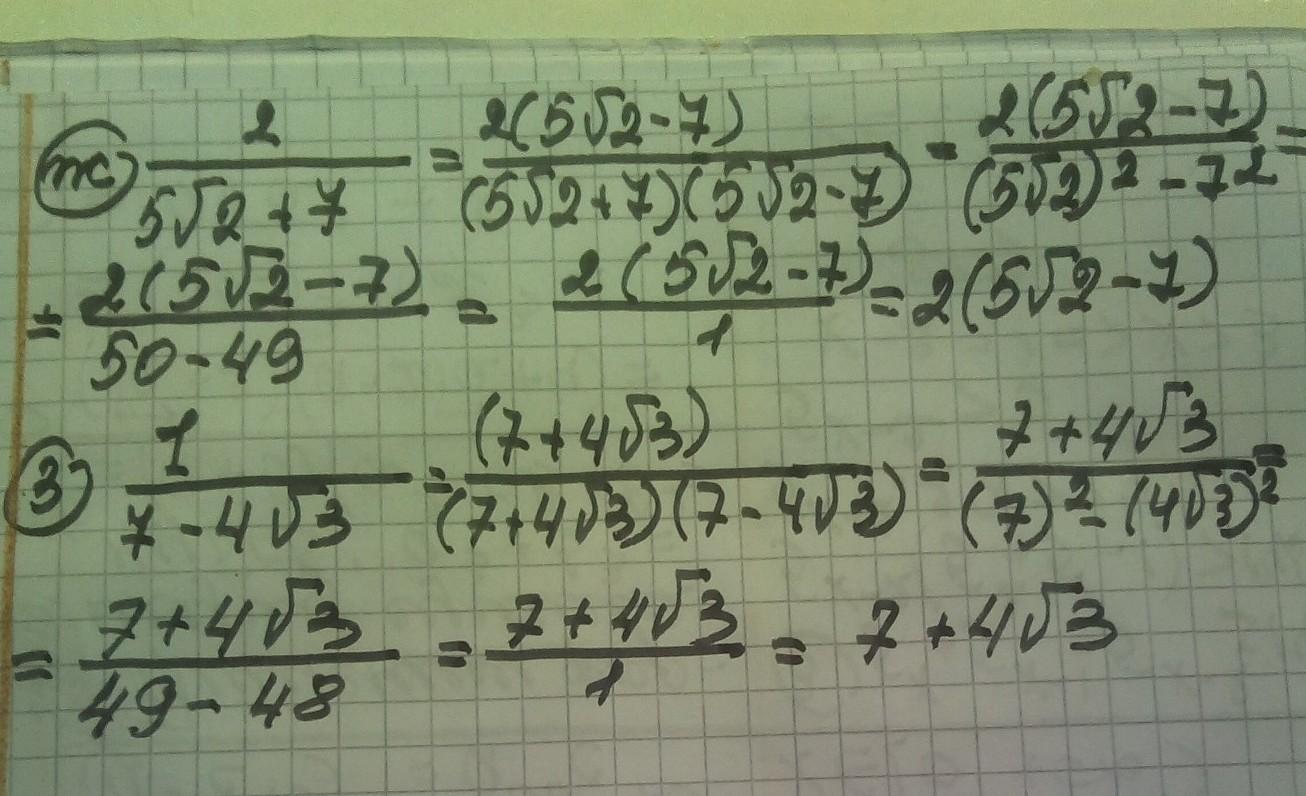 ж) 2/(5√2+7) = 2(5√2-7)/((5√2+7)(5√2-7)) = 2(5√2-7)/((5√2)²-7²) =
= 2(5√2-7)/(50-49) = 2(5√2-7)/1 = 2(5√2-7)
з) 1/(7-4√3) = (7+4√3)/((7+4√3)(7-4√3)) = (7+4√3)/((7)²-(4√3)²) =
= (7+4√3)/(49-48) = (7+4√3)/1 = 7+4√3